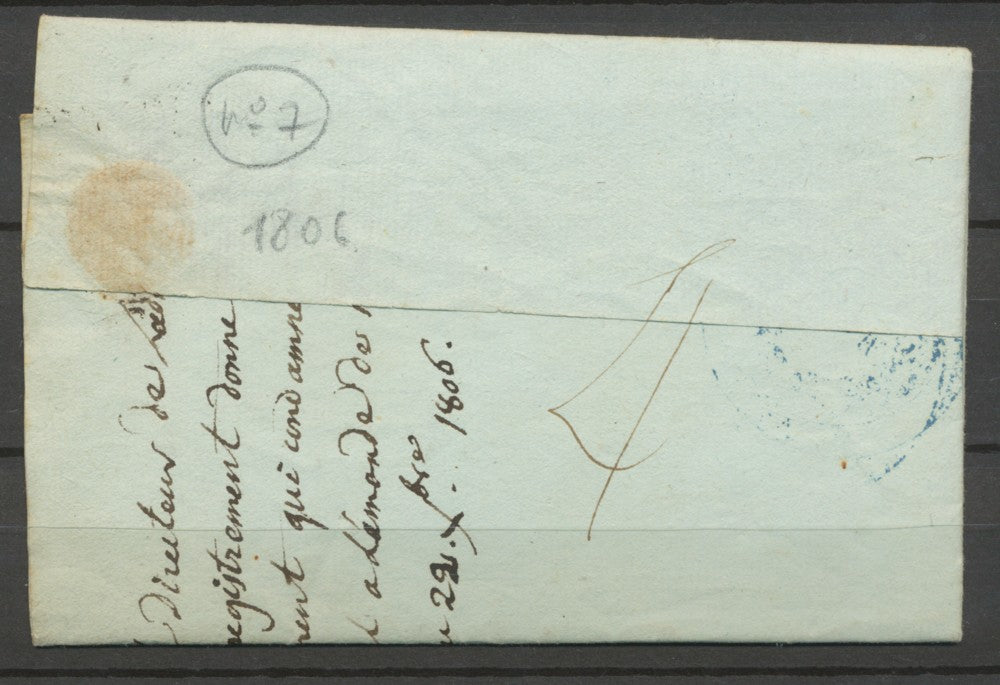 No 7
1806
Directeur de
egistrement donne
ent qui condamne
a lémonde de
22. Xbre. 1806.
4